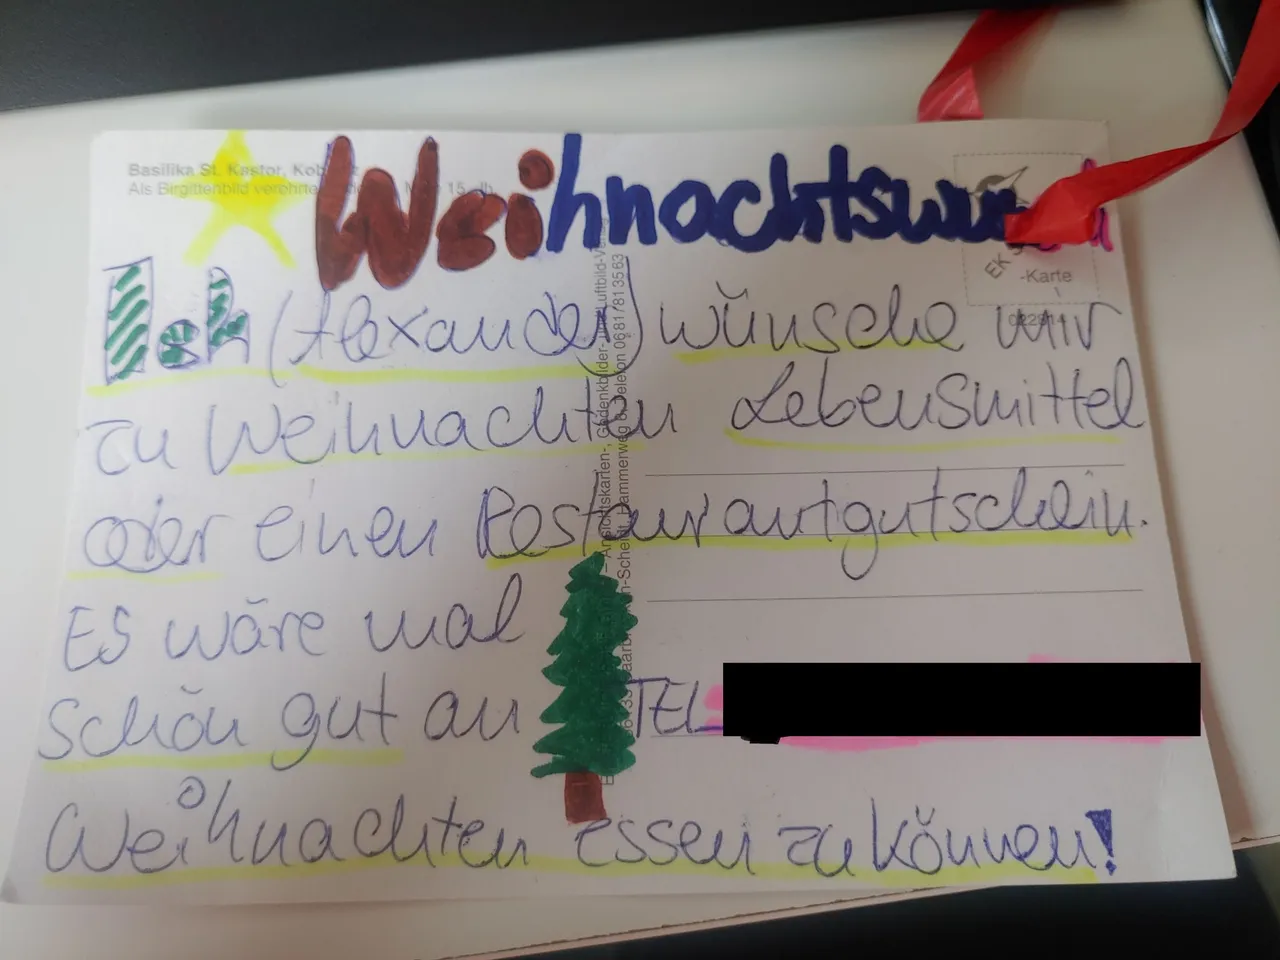 Basilika St. Kastor, Kob
Als Birgittenbild verehrte
15. Jh.
Weihnachtswu
Ich (Alexander) wünsche mir
zu Weihnachten Lebensmittel
oder einen Restaurantgutschein.
Es wäre mal
schön gut an
Weihnachten essen zu können!
TEL
EK
-Karte
Ansichtskarten-, Gedenkbilder- und Luftbild-Verlag
Hammerweg 8, Telefon 0681/813563